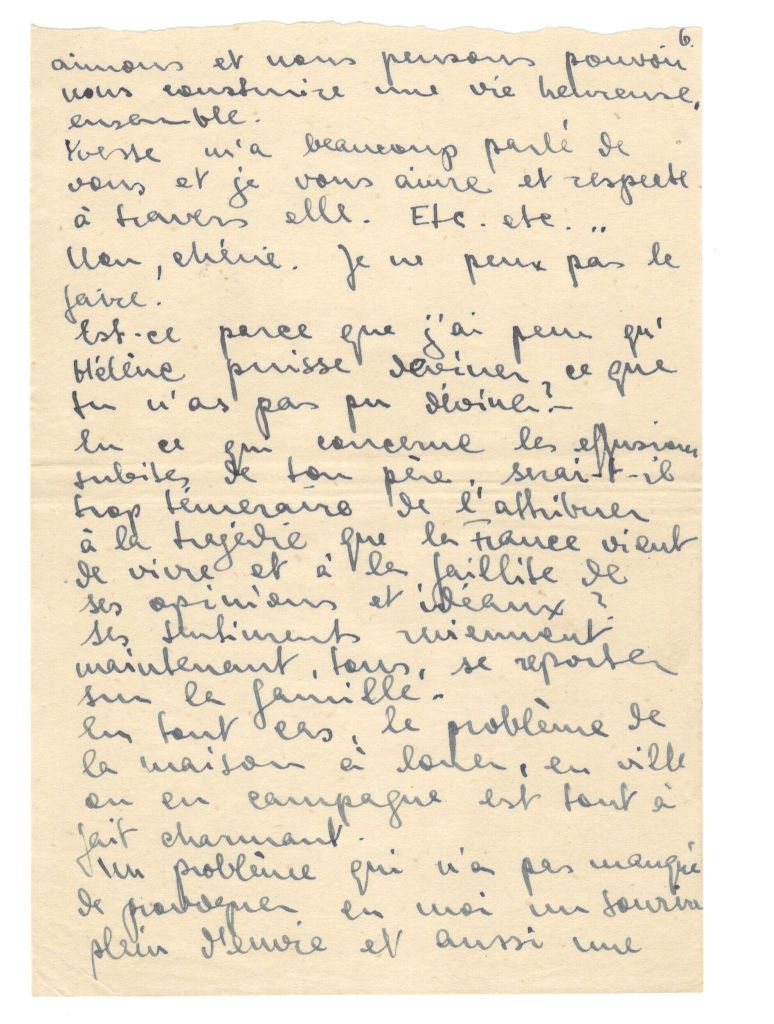 6.
aimons et nous pensons pouvoir
nous construire une vie heureuse,
ensemble.
Yvesse m'a beaucoup parlé de
vous et je vous aime et respecte
à travers elle. Etc. etc...
Non, chérie. Je ne peux pas le
faire.
Est-ce parce que j'ai peur qu'
Hélène puisse deviner ce que
tu n'as pas pu déviner?-
En ce qui concerne les effusions
subites de ton père, serai-t-il
trop témeraire de l'attribuer
à la tragédie que la France vient
de vivre et à la faillite de
ses opinions et idéaux?
Ses sentiments reviennent
maintenant, tous, se reporter
sur la famille.
En tout cas, le problème de
la maison à louer, en ville
ou en campagne est tout à
fait charmant.
Un problème qui n'a pas manqué
de provoquer en moi un sourire
plein d'envie et aussi une